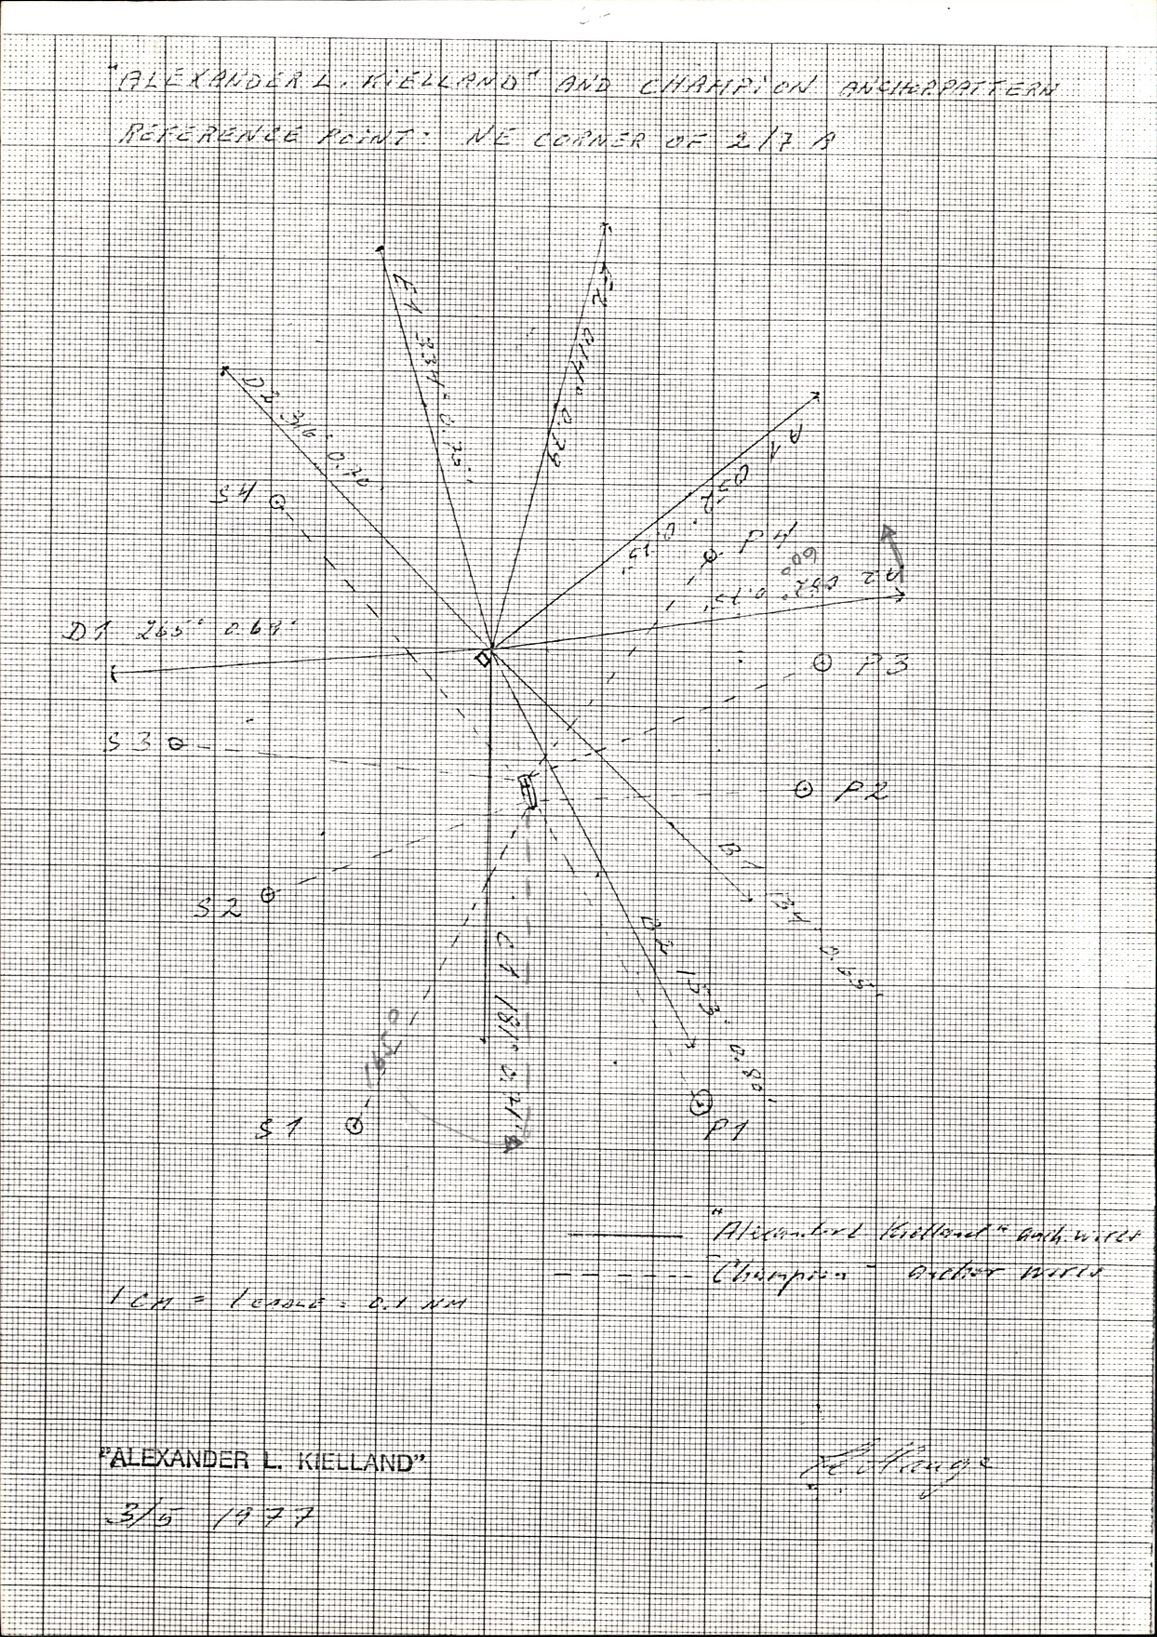 "ALEXANDER L. KIELLAND" AND CHAMPION ANCHORPATTERN
REFERENCE POINT: NE CORNER OF 2/7 A
E2 014° 0.79
E1 337° 0.75'
D2 316° 0.70'
A1 052° 0.75'
S4
P4
60°
A2 082° 0.75'
D1 265° 0.69'
P3
S3
P2
B1 0.65'
S2
B2 153° 0.80'
C1 181° 0.71'
165°
S1
P1
"Alexander L Kielland" anch. wires
"Champion" anchor wires
1 CM = 1 CABLE = 0.1 NM
"ALEXANDER L. KIELLAND"
3/5 1977